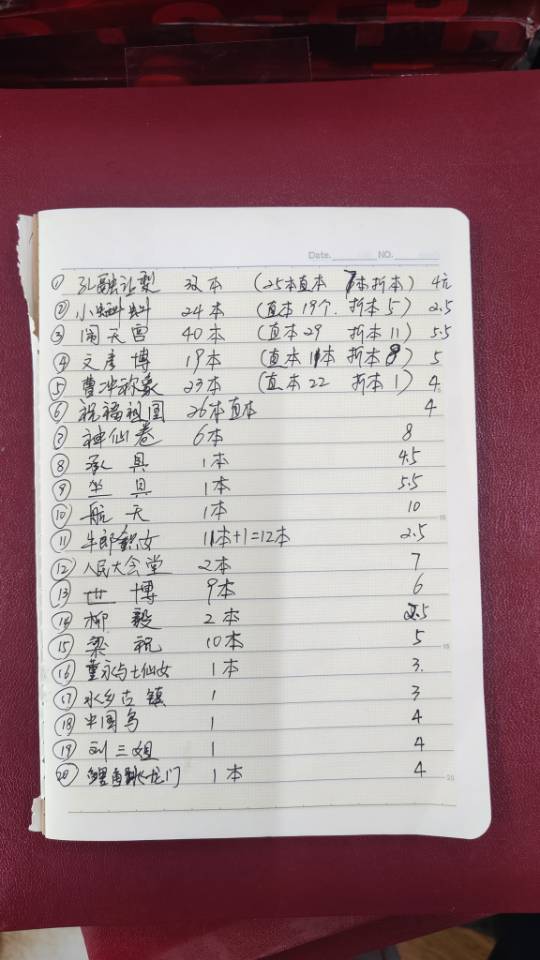 Date. NO.
① 孔融让梨 32本 (25本直本 7本折本) 4元
② 小蝌蚪 24本 (直本19个. 折本5) 2.5
③ 闹天宫 40本 (直本29 折本11) 5.5
④ 文彦博 19本 (直本11本 折本8) 5
⑤ 曹冲称象 23本 (直本22 折本1) 4
⑥ 祝福祖国 26本直本 4
⑦ 神仙卷 6本 8
⑧ 承具 1本 4.5
⑨ 坐具 1本 5.5
⑩ 航天 1本 10
⑪ 牛郎织女 11本+1=12本 2.5
⑫ 人民大会堂 2本 7
⑬ 世博 9本 6
⑭ 柳毅 2本 2.5
⑮ 梁祝 10本 5
⑯ 董永与七仙女 1本 3.
⑰ 水乡古镇 1 3
⑱ 中国鸟 1 4
⑲ 刘三姐 1 4
⑳ 鲤鱼跳龙门 1本 4